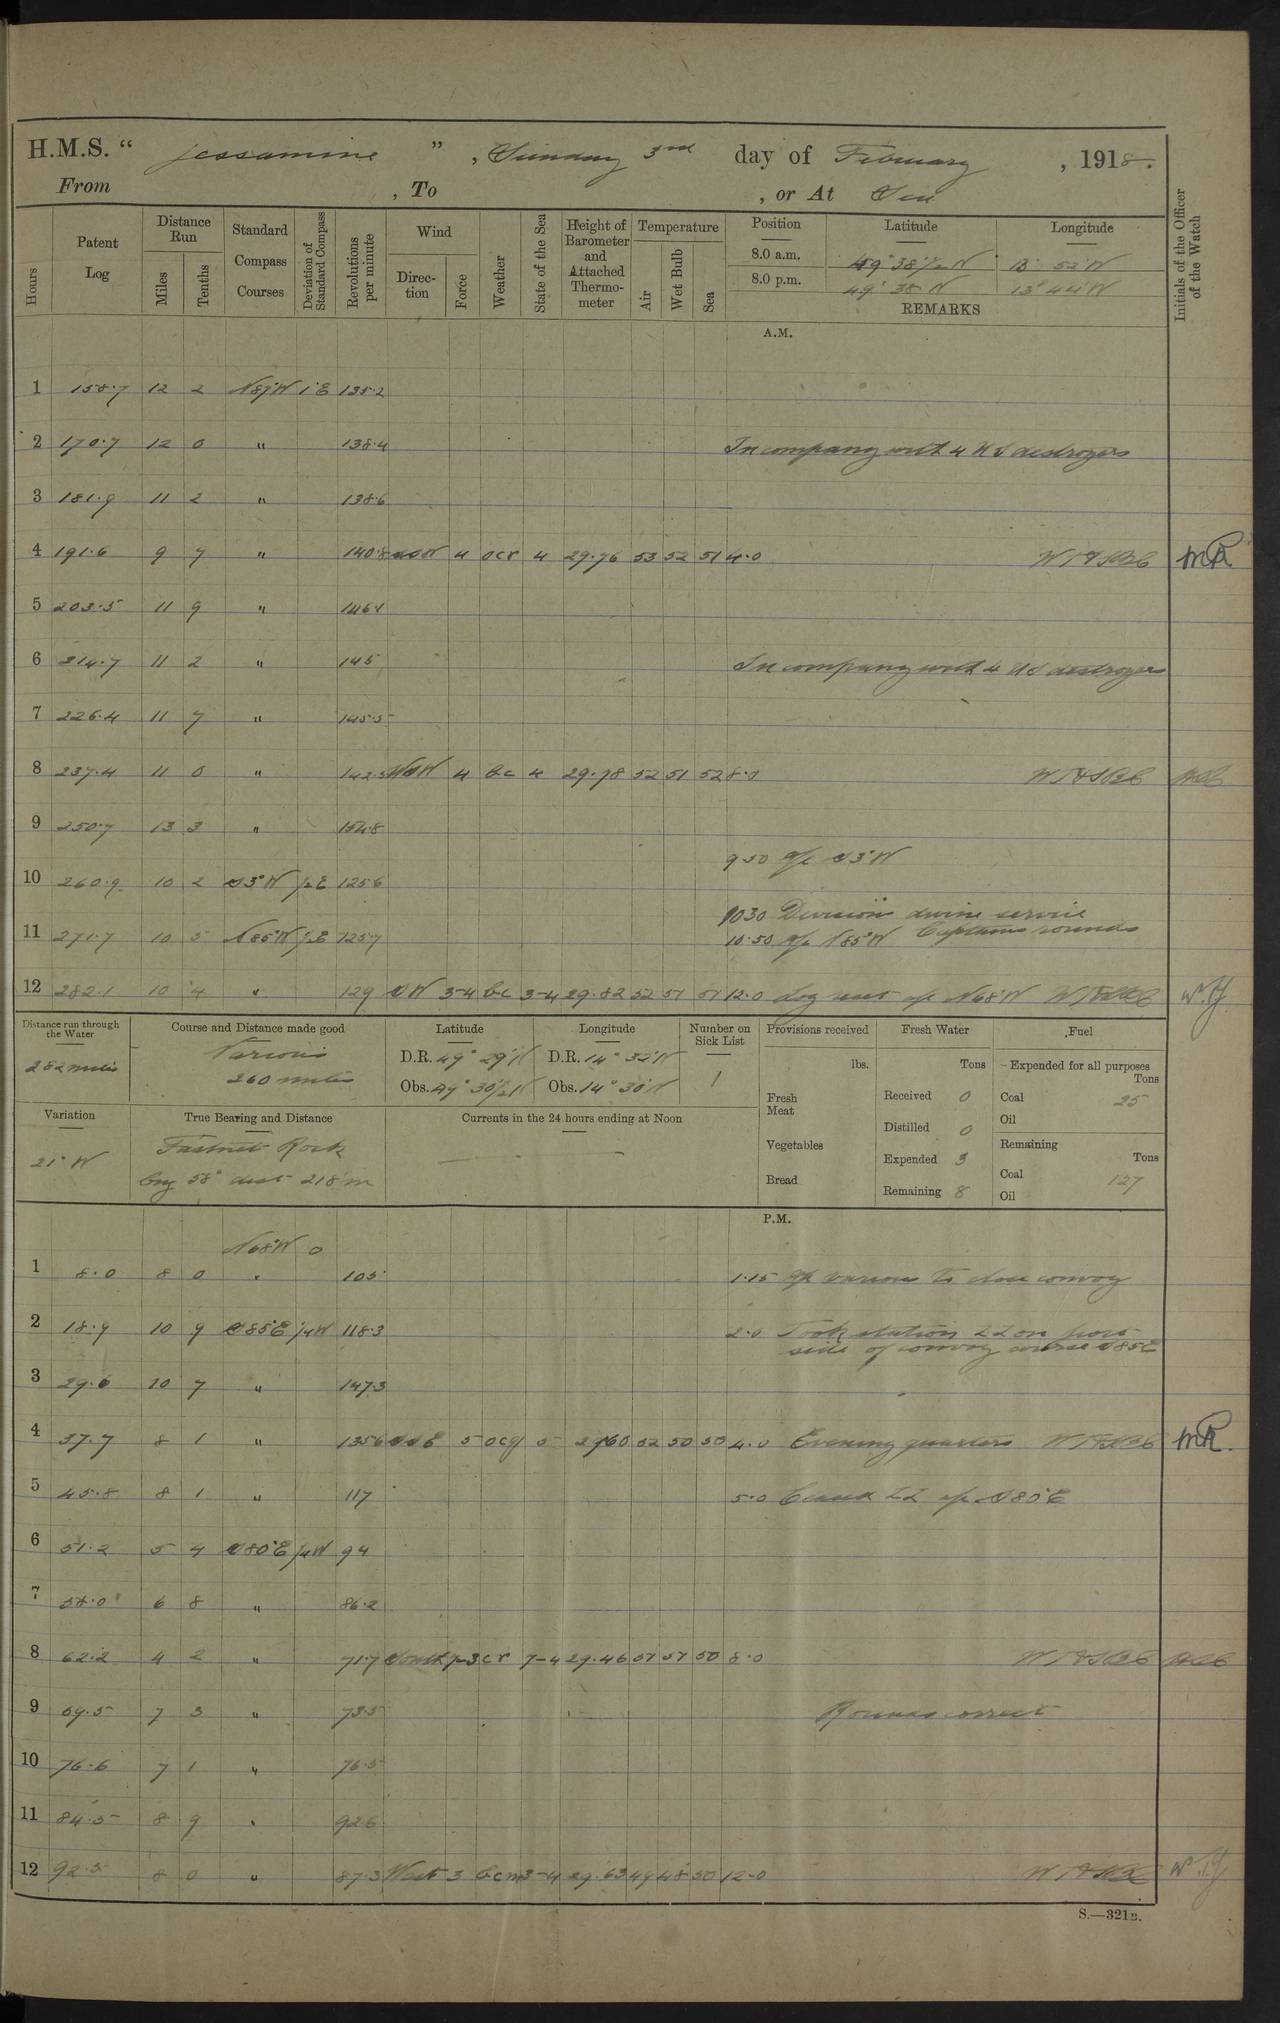 H.M.S. “ Jessamine ” , Sunday 3rd day of February , 1918.
From , To , or At Sea
Hours Patent Log Distance Run Miles Tenths Standard Compass Courses Deviation of Standard Compass Revolutions per minute Wind Direction Force Weather State of the Sea Height of Barometer and Attached Thermometer Temperature Air Wet Bulb Sea Position Latitude Longitude Initials of the Officer of the Watch
8.0 a.m. 49° 38½ N 13° 52' W
8.0 p.m. 49° 38 N 13° 44' W
REMARKS
A.M.
1 158.7 12 2 N87°W 1°E 135.2
2 170.7 12 0 " 138.4 In company with 4 US destroyers
3 181.9 11 2 " 138.6
4 191.6 9 7 " 140.8 4 ocr 4 29.76 53 52 51 4.0
5 203.5 11 9 " 146.1
6 214.7 11 2 " 145 In company with 4 US destroyers
7 226.4 11 7 " 145.5
8 237.4 11 0 " 142.5 WSW 4 bc 4 29.78 52 51 52 8.0
9 250.7 13 3 " 154.8
9.50 a/c S3°W
10 260.9 10 2 S3°W ½E 125.6
10.30 Division divine service
11 271.7 10 5 N85°W ½E 125.7 10.50 a/c N85°W Captains rounds
12 282.1 10 4 " 129 SW 3-4 bc 3-4 29.82 52 51 51 12.0 Log reset a/c N68°W
Distance run through the Water 282 miles
Course and Distance made good Various 260 miles
Latitude D.R. 49° 29' N Obs. 49° 30½ N
Longitude D.R. 14° 32' W Obs. 14° 30' W
Number on Sick List 1
Provisions received lbs. Fresh Meat Vegetables Bread
Fresh Water Tons Received 0 Distilled 0 Expended 3 Remaining 8
Fuel Expended for all purposes Tons Coal 25 Oil Remaining Tons Coal 127 Oil
Variation 21° W
True Bearing and Distance Fastnet Rock brg 58° dist 218 m
Currents in the 24 hours ending at Noon —
P.M.
N68°W 0
1 8.0 8 0 " 105 1.15 a/c various to close convoy
2 18.9 10 9 S85°E ¼W 118.3 2.0 Took station on port
side of convoy course S85E
3 29.6 10 7 " 147.3
4 37.7 8 1 " 135.6 SSE 5 ocg 5 29.60 52 50 50 4.0 Evening quarters
5 45.8 8 1 " 117 5.0 Ceased ZZ a/c S80°E
6 51.2 5 4 S80°E ¼W 94
7 58.0 6 8 " 86.2
8 62.2 4 2 " 71.7 South 7-3 cr 7-4 29.46 51 51 50 8.0
9 69.5 7 3 " 73.5 Rounds correct
10 76.6 7 1 " 76.5
11 84.5 8 9 " 92.6
12 92.5 8 0 " 87.3 West 3 bcm 3-4 29.63 49 48 50 12.0
S.—321B.